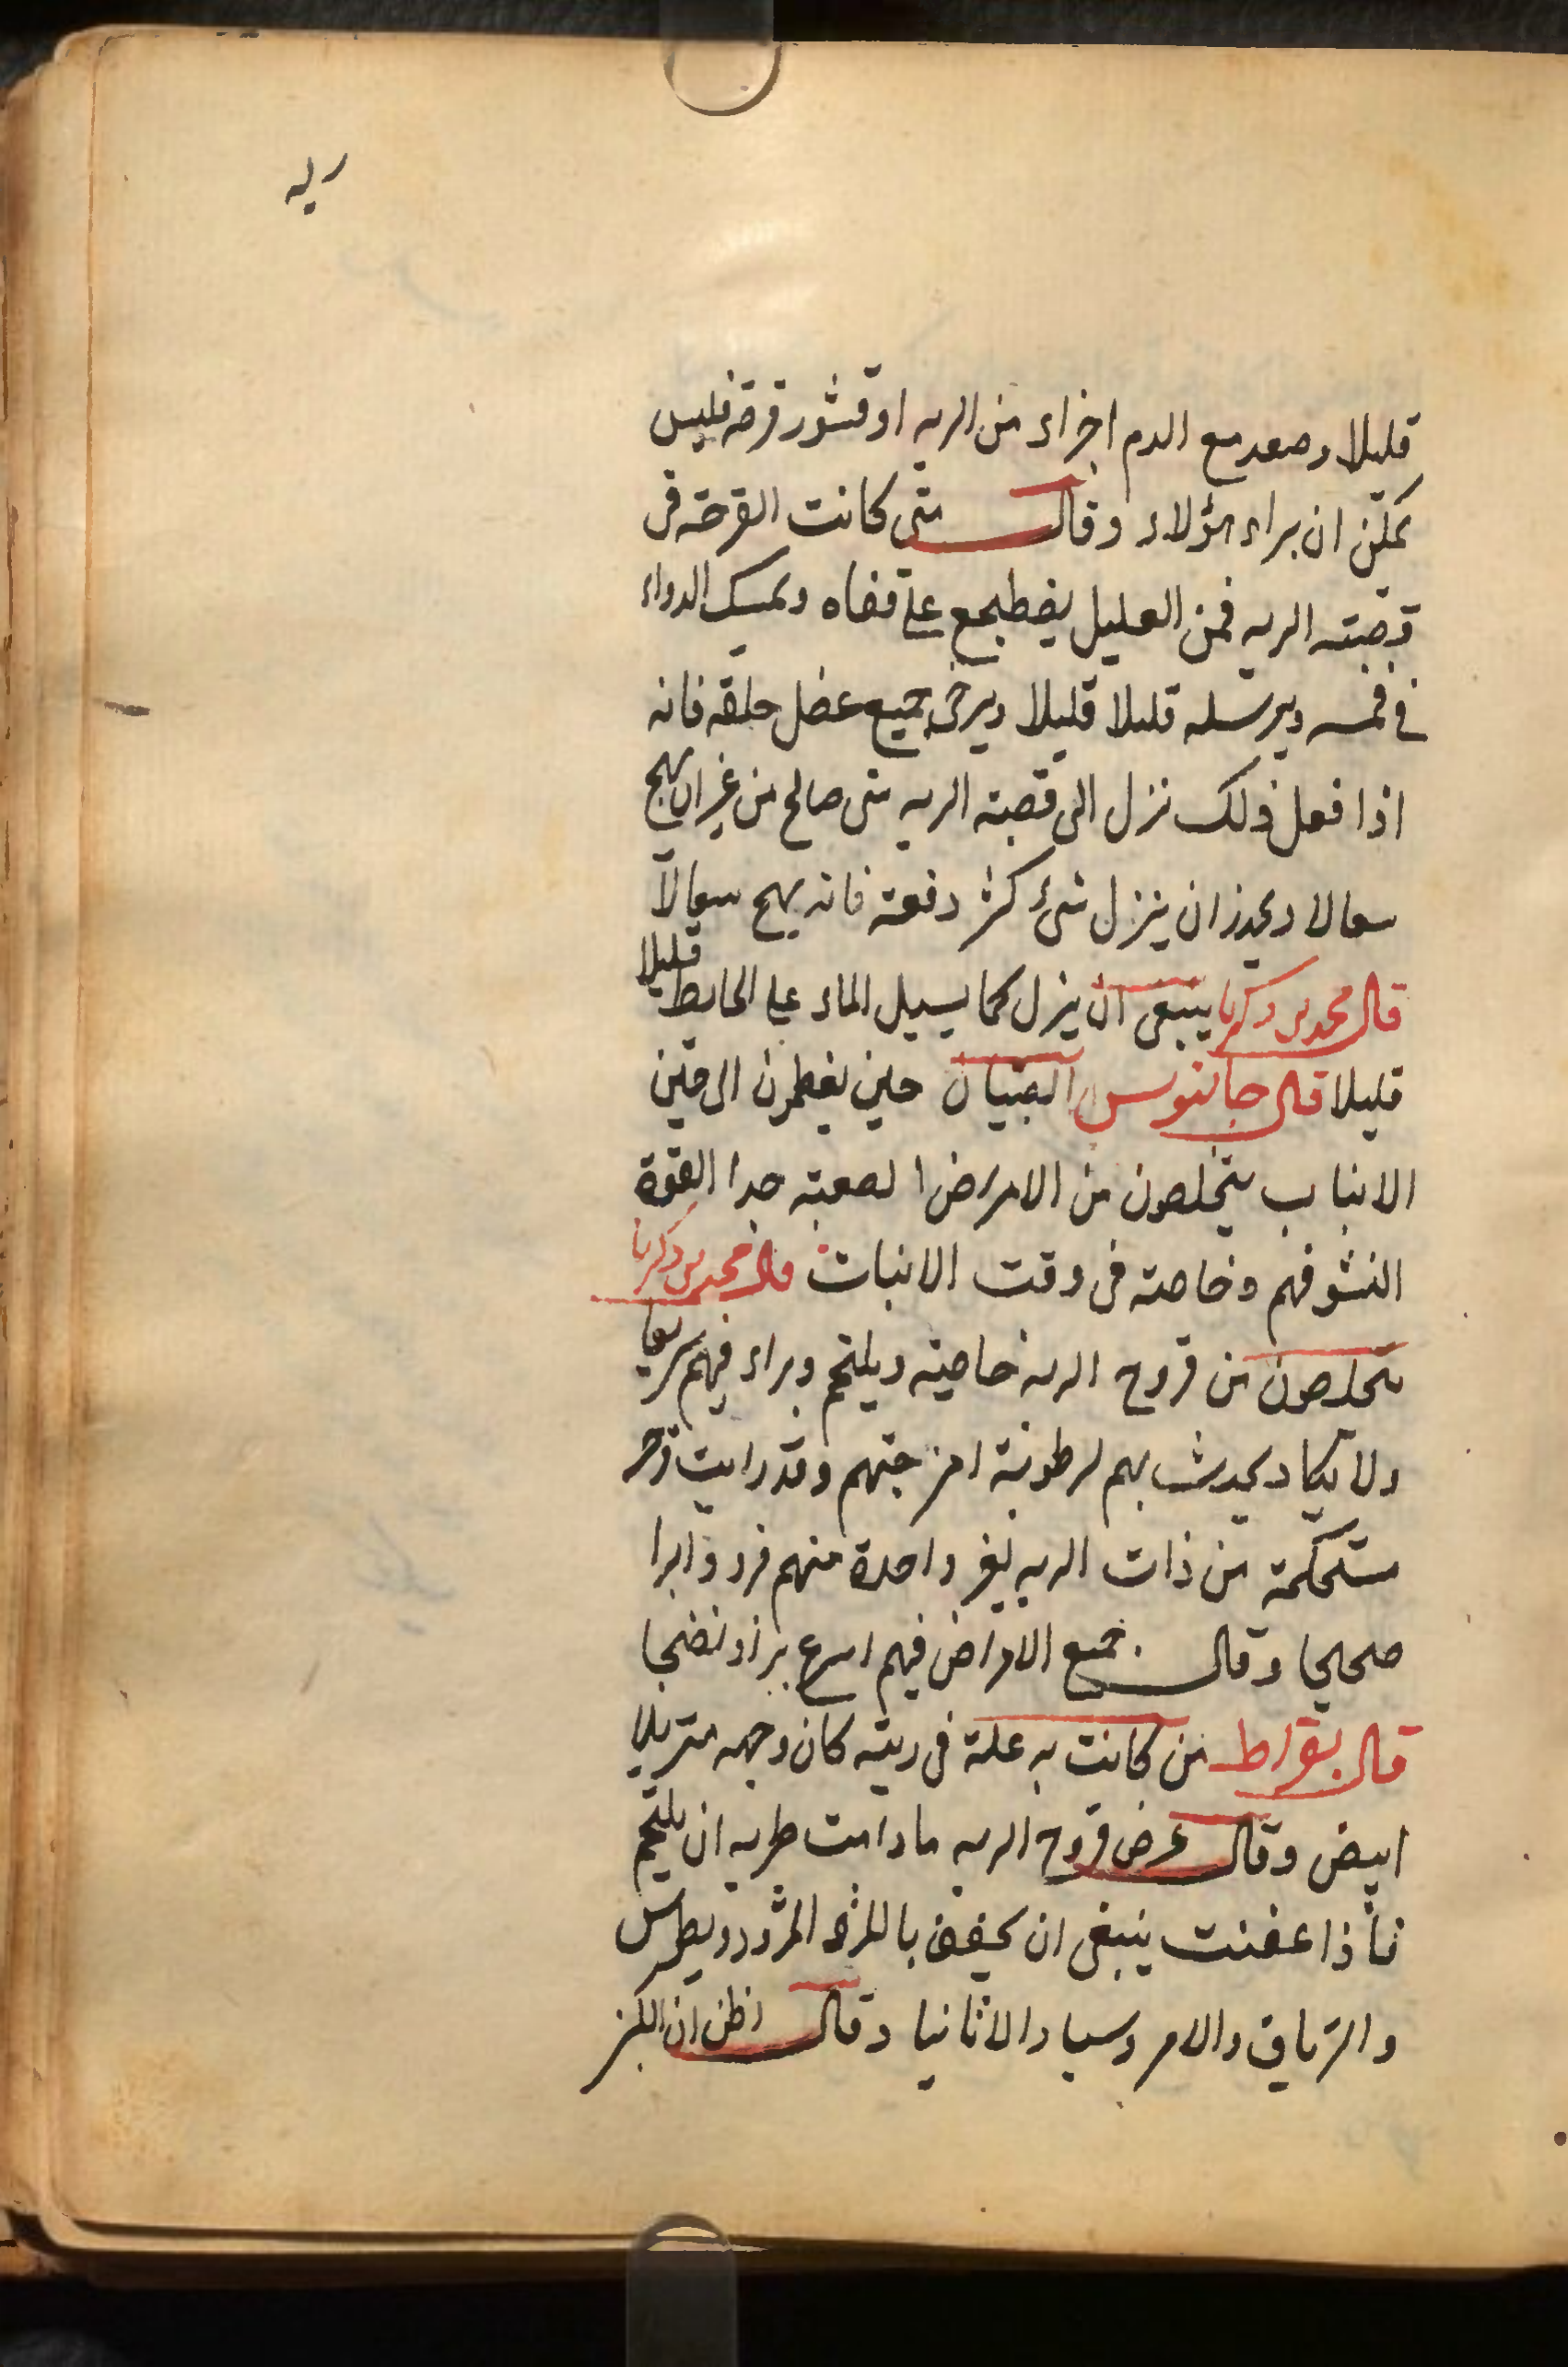 ريه
قليلا وصعد مع الدم اجزاء من الريه او قشور قرحه فليس
يمكن ان براء هؤلاء وقال متى كانت القرحة فى
قصبته الريه فمن العليل يضطجع على قفاه ويمسك الدواء
فى فمه ويرسله قليلا قليلا ويرخى جميع عضل حلقه فانه
اذا فعل ذلك نزل الى قصبته الريه شى صالح من غير ان يهيج
سعالا ويحذر ان ينزل شئ كثر دفعة فانه يهيج سعالاً
قال محمد بن زكريا ينبغى ان ينزل كما يسيل الماء على الحايط قليلا
قليلا قال جالينوس الصبيان حين يفطمون الى حين
الانبات يتخلصون من الامراض الصعبة جدا القوة
النشو فيهم وخاصته فى وقت الانبات قال محمد بن زكريا
يتخلصون من قروح الريه خاصيته ويلتحم وبراء فيهم سريعا
ولا يكاد يحدث بهم لرطوبة امزجتهم وقد رايت قرحه
مستحكمة من ذات الريه لغير واحدة منهم فرووا برا
صحيحا وقال جميع الامراض فيهم اسرع براء ونضجا
قال بقراط من كانت به علة فى ريته كان وجهه متربلا
ابيض وقال عرض قروح الريه ما دامت طريه ان يلتحم
فأذا عفنت ينبغى ان يجفف بالمثرود وبطوس
والترياق والامروسيا والاثانيا وقال اظن ان الكبر